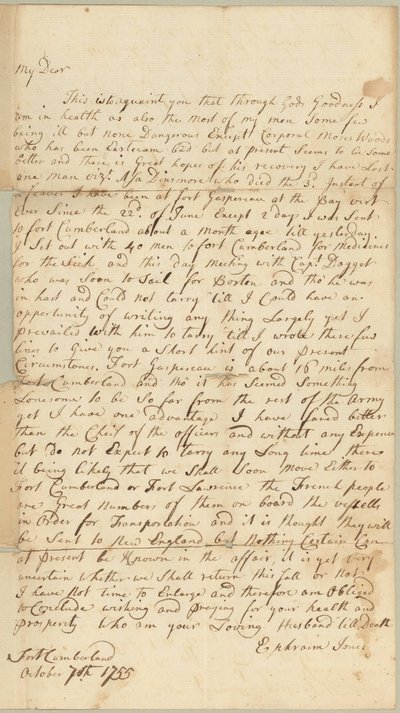 My Dear
This is to aquaint you that through Gods Goodness I
am in health as also the most of my men Some few
being ill but none Dangerous Except Corporal Moses Woods
who has been Extream bad but at present Seems to be Some
better and there is Great hopes of his recovery I have Lost
one man viz: Asa Dinsmore who died the 3d. Instant of
a feaver I have been at fort Gaspereau at the Bay vert
Ever Since the 22d. of June Except 2 days I was Sent
to fort Cumberland about a month agoe till yesterday.
I Set out with 40 men to fort Cumberland for medicines
for the Sick and this day meeting with Capt. Dogget
who was Soon to Sail for Boston and tho he was
in hast and Could not tarry till I Could have an
opportunity of writing any thing Largely yet I
prevailed with him to tarry till I wrote these few
lines to Give you a Short hint of our present
Circumstances. Fort Gaspereau is about 16 miles from
fort Cumberland and tho it has Seemed Something
Lonesome to be So far from the rest of the Army
yet I have one advantage I have fared better
than the Cheif of the officers and without any Expence
but Do not Expect to tarry any Long time there
it being likely that we Shall Soon move Either to
Fort Cumberland or Fort Lawrence the French people
are Great number of them on board the vessells
in Order for Transportation and it is thought they will
be Sent to New England but nothing Certain Can
at Present be Known in the affair, it is yet very
uncertain whether we Shall return this fall or not
I have not time to Enlarge and therefore am Obliged
to Conclude wishing and praying for your health and
Prosperity who am your Loving Husband till Death
Ephraim Jones
Fort Cumberland
October 7th. 1755